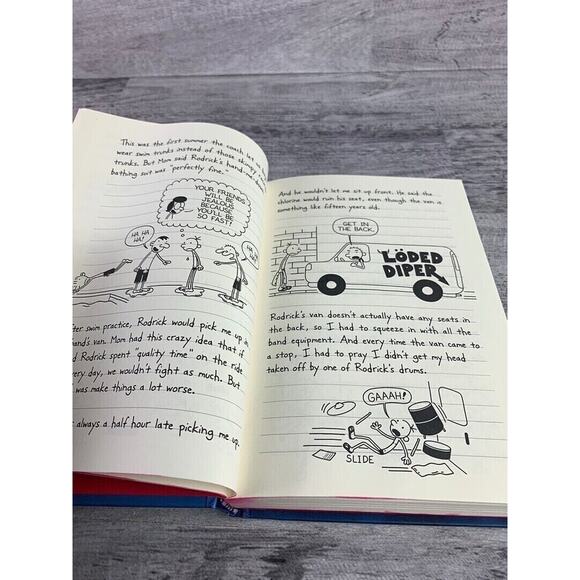 This was the first summer the coach let us
wear swim trunks instead of those skimpy
trunks. But Mom said Rodrick's hand-me-down
bathing suit was "perfectly fine."
YOUR FRIENDS
WILL BE
JEALOUS
BECAUSE
YOU'LL BE
SO FAST!
HA HA
HA!
HA
swim practice, Rodrick would pick me up in
van. Mom had this crazy idea that if
Rodrick spent "quality time" on the ride
every day, we wouldn't fight as much. But
was make things a lot worse.
always a half hour late picking me up.
And he wouldn't let me sit up front. He said the
chlorine would ruin his seat, even though the van is
something like fifteen years old.
GET IN
THE BACK.
LÖDED
DIPER
Rodrick's van doesn't actually have any seats in
the back, so I had to squeeze in with all the
band equipment. And every time the van came to
a stop, I had to pray I didn't get my head
taken off by one of Rodrick's drums.
GAAAH!
SLIDE